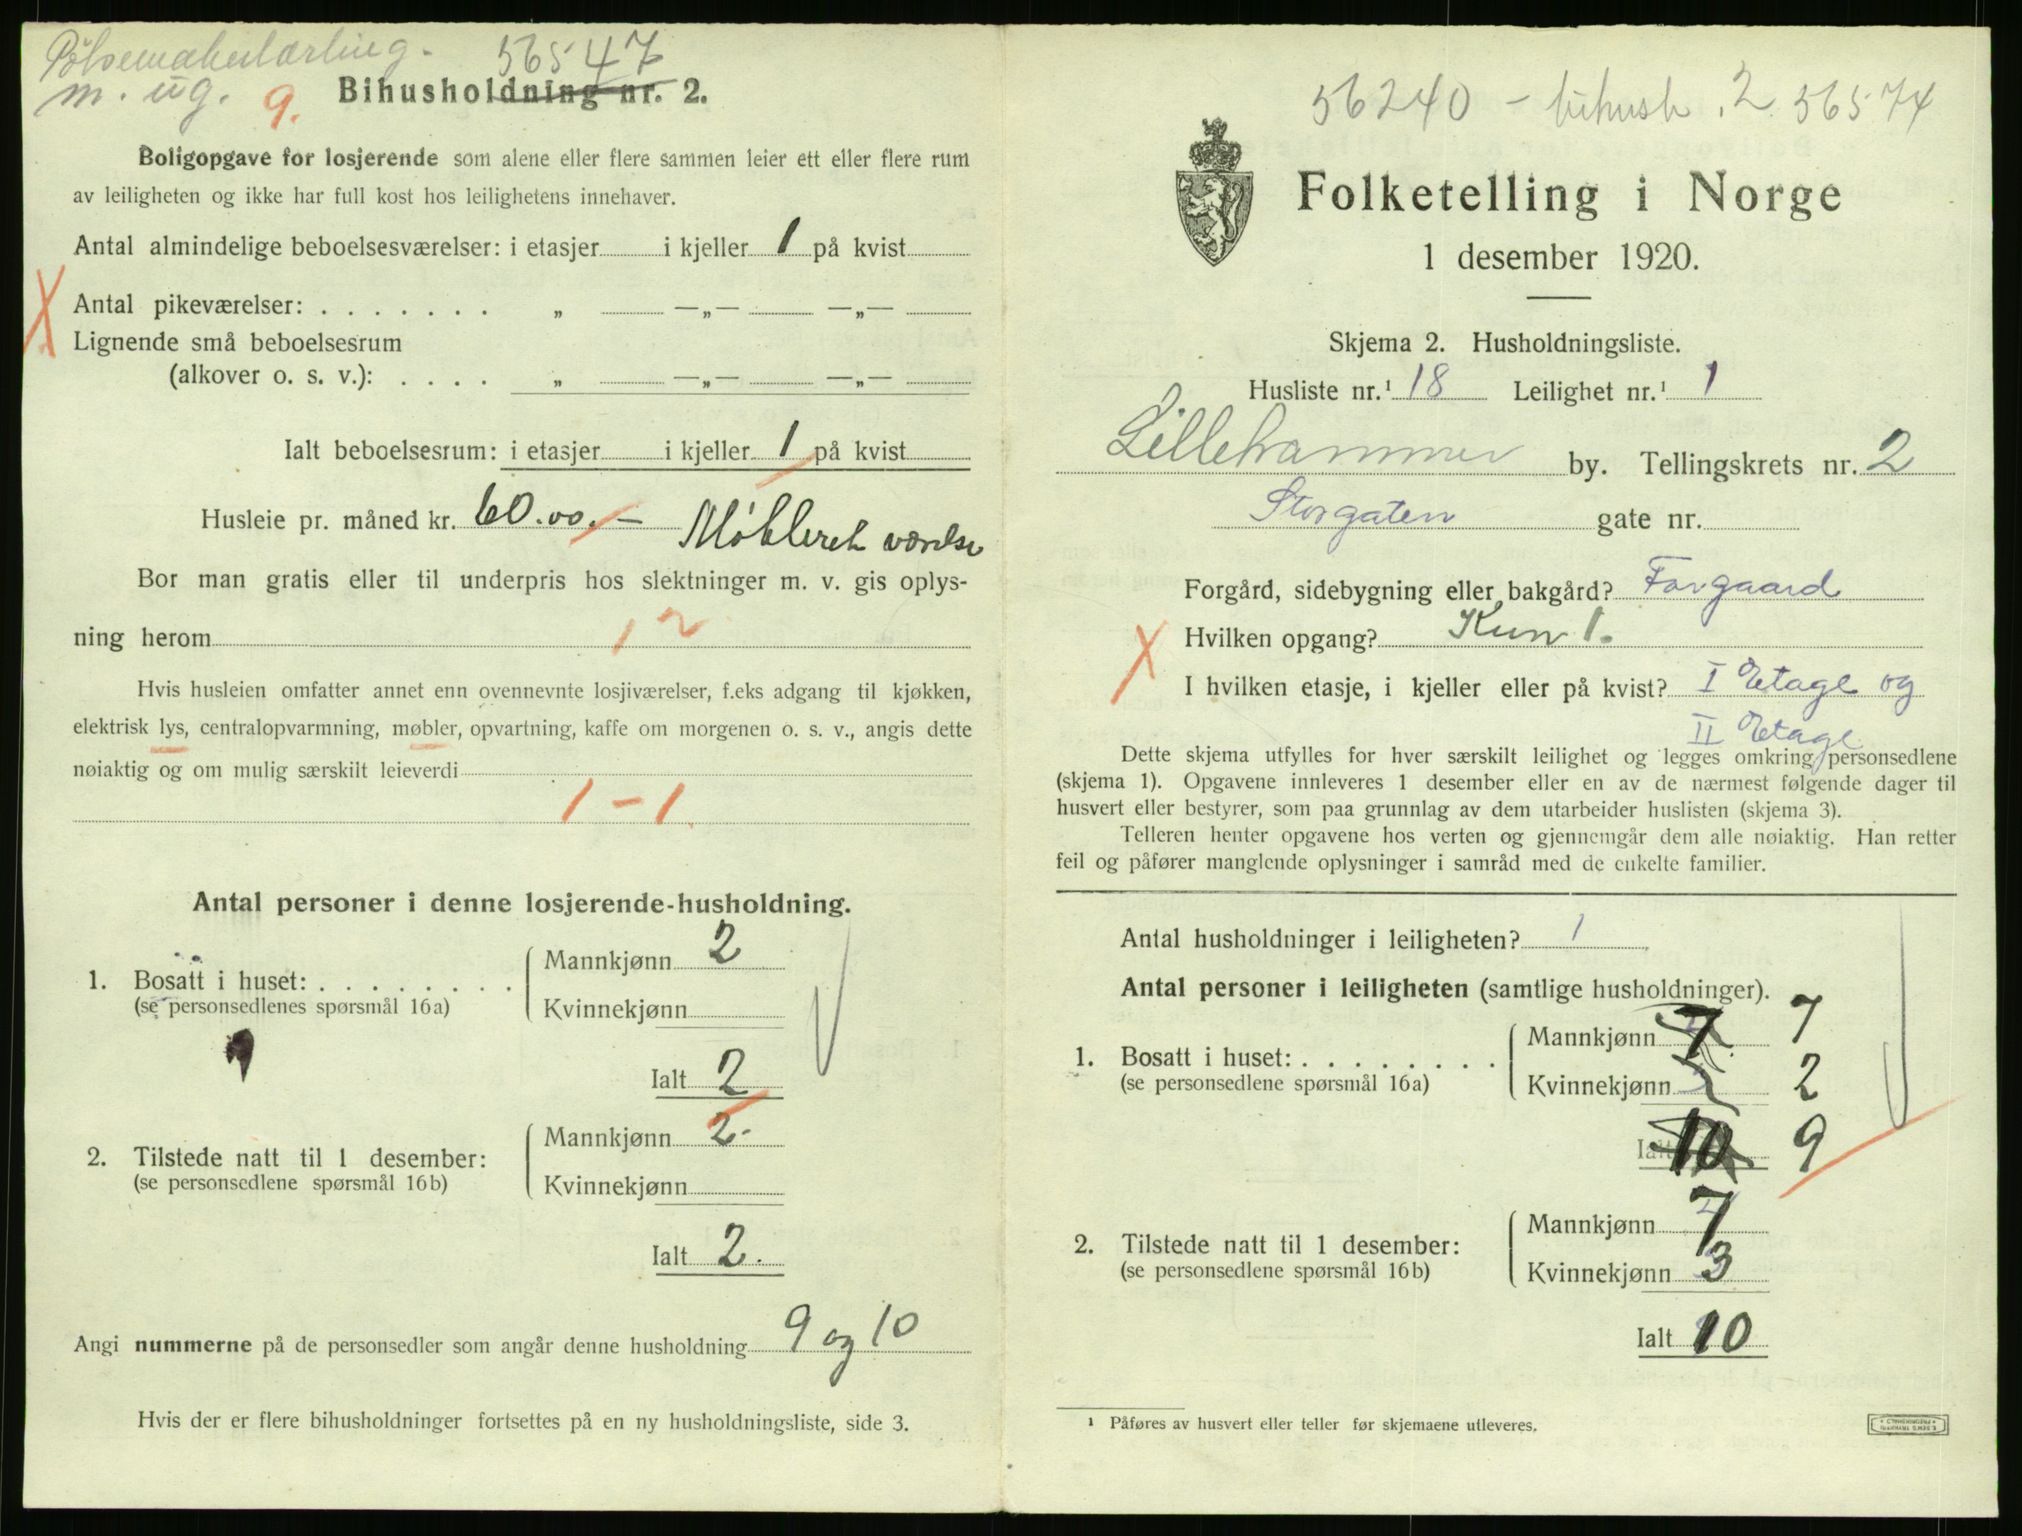 Pølsemakerlærling.
56547
m. ug. 9.
Bihusholdning nr. 2.
Boligopgave for losjerende som alene eller flere sammen leier ett eller flere rum
av leiligheten og ikke har full kost hos leilighetens innehaver.
Antal almindelige beboelsesværelser: i etasjer i kjeller 1 på kvist
Antal pikeværelser: . . . . . . . „ —„— —„—
Lignende små beboelsesrum
(alkover o. s. v.): . . . . „ —„— —„—
Ialt beboelsesrum: i etasjer i kjeller 1 på kvist
Husleie pr. måned kr. 60.00. — Møbleret værelse
Bor man gratis eller til underpris hos slektninger m. v. gis oplys-
ning herom 12
Hvis husleien omfatter annet enn ovennevnte losjiværelser, f.eks adgang til kjøkken,
elektrisk lys, centralopvarmning, møbler, opvartning, kaffe om morgenen o. s. v., angis dette
nøiaktig og om mulig særskilt leieverdi
1 - 1.
Antal personer i denne losjerende-husholdning.
1. Bosatt i huset: . . . . . . . .
(se personsedlenes spørsmål 16a)
Mannkjønn 2
Kvinnekjønn
Ialt 2
2. Tilstede natt til 1 desember:
(se personsedlene spørsmål 16b)
Mannkjønn 2-
Kvinnekjønn
Ialt 2.
Angi nummerne på de personsedler som angår denne husholdning 9 og 10
Hvis der er flere bihusholdninger fortsettes på en ny husholdningsliste, side 3.
56240 - bihush. 2 56574
Folketelling i Norge
1 desember 1920.
Skjema 2. Husholdningsliste.
Husliste nr.¹ 18 Leilighet nr.¹ 1
Lillehammer by. Tellingskrets nr. 2
Storgaten gate nr.
Forgård, sidebygning eller bakgård? Forgaard
Hvilken opgang? Kun 1.
I hvilken etasje, i kjeller eller på kvist? I Etage og
II Etage
Dette skjema utfylles for hver særskilt leilighet og legges omkring personsedlene
(skjema 1). Opgavene innleveres 1 desember eller en av de nærmest følgende dager til
husvert eller bestyrer, som paa grunnlag av dem utarbeider huslisten (skjema 3).
Telleren henter opgavene hos verten og gjennemgår dem alle nøiaktig. Han retter
feil og påfører manglende oplysninger i samråd med de enkelte familier.
Antal husholdninger i leiligheten? 1
Antal personer i leiligheten (samtlige husholdninger).
1. Bosatt i huset: . . . . . . . .
(se personsedlene spørsmål 16a)
Mannkjønn 7 7
Kvinnekjønn 2
Ialt 10 9
2. Tilstede natt til 1 desember:
(se personsedlene spørsmål 16b)
Mannkjønn 7
Kvinnekjønn 3
Ialt 10
¹ Påføres av husvert eller teller før skjemaene utleveres.